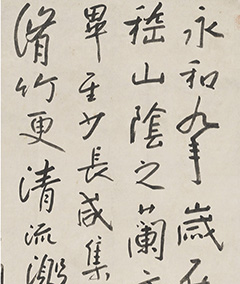 永和九年歲
稽山陰之蘭
畢至少長咸集
脩竹更清流激